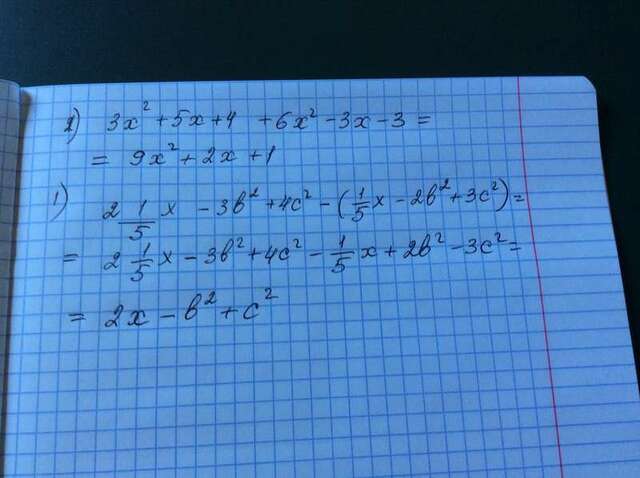 2) 3x² + 5x + 4 + 6x² - 3x - 3 =
= 9x² + 2x + 1
1) 2 1/5 x - 3в² + 4c² - (1/5 x - 2в² + 3c²) =
= 2 1/5 x - 3в² + 4c² - 1/5 x + 2в² - 3c² =
= 2x - в² + c²